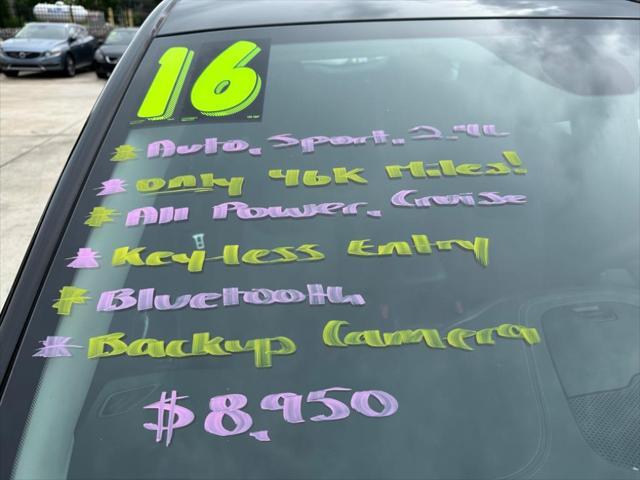 16
* Auto, Sport, 2.4L
* only 46K Miles!
* All Power, Cruise
* Key-less Entry
* Bluetooth
* Backup Camera
$8,950